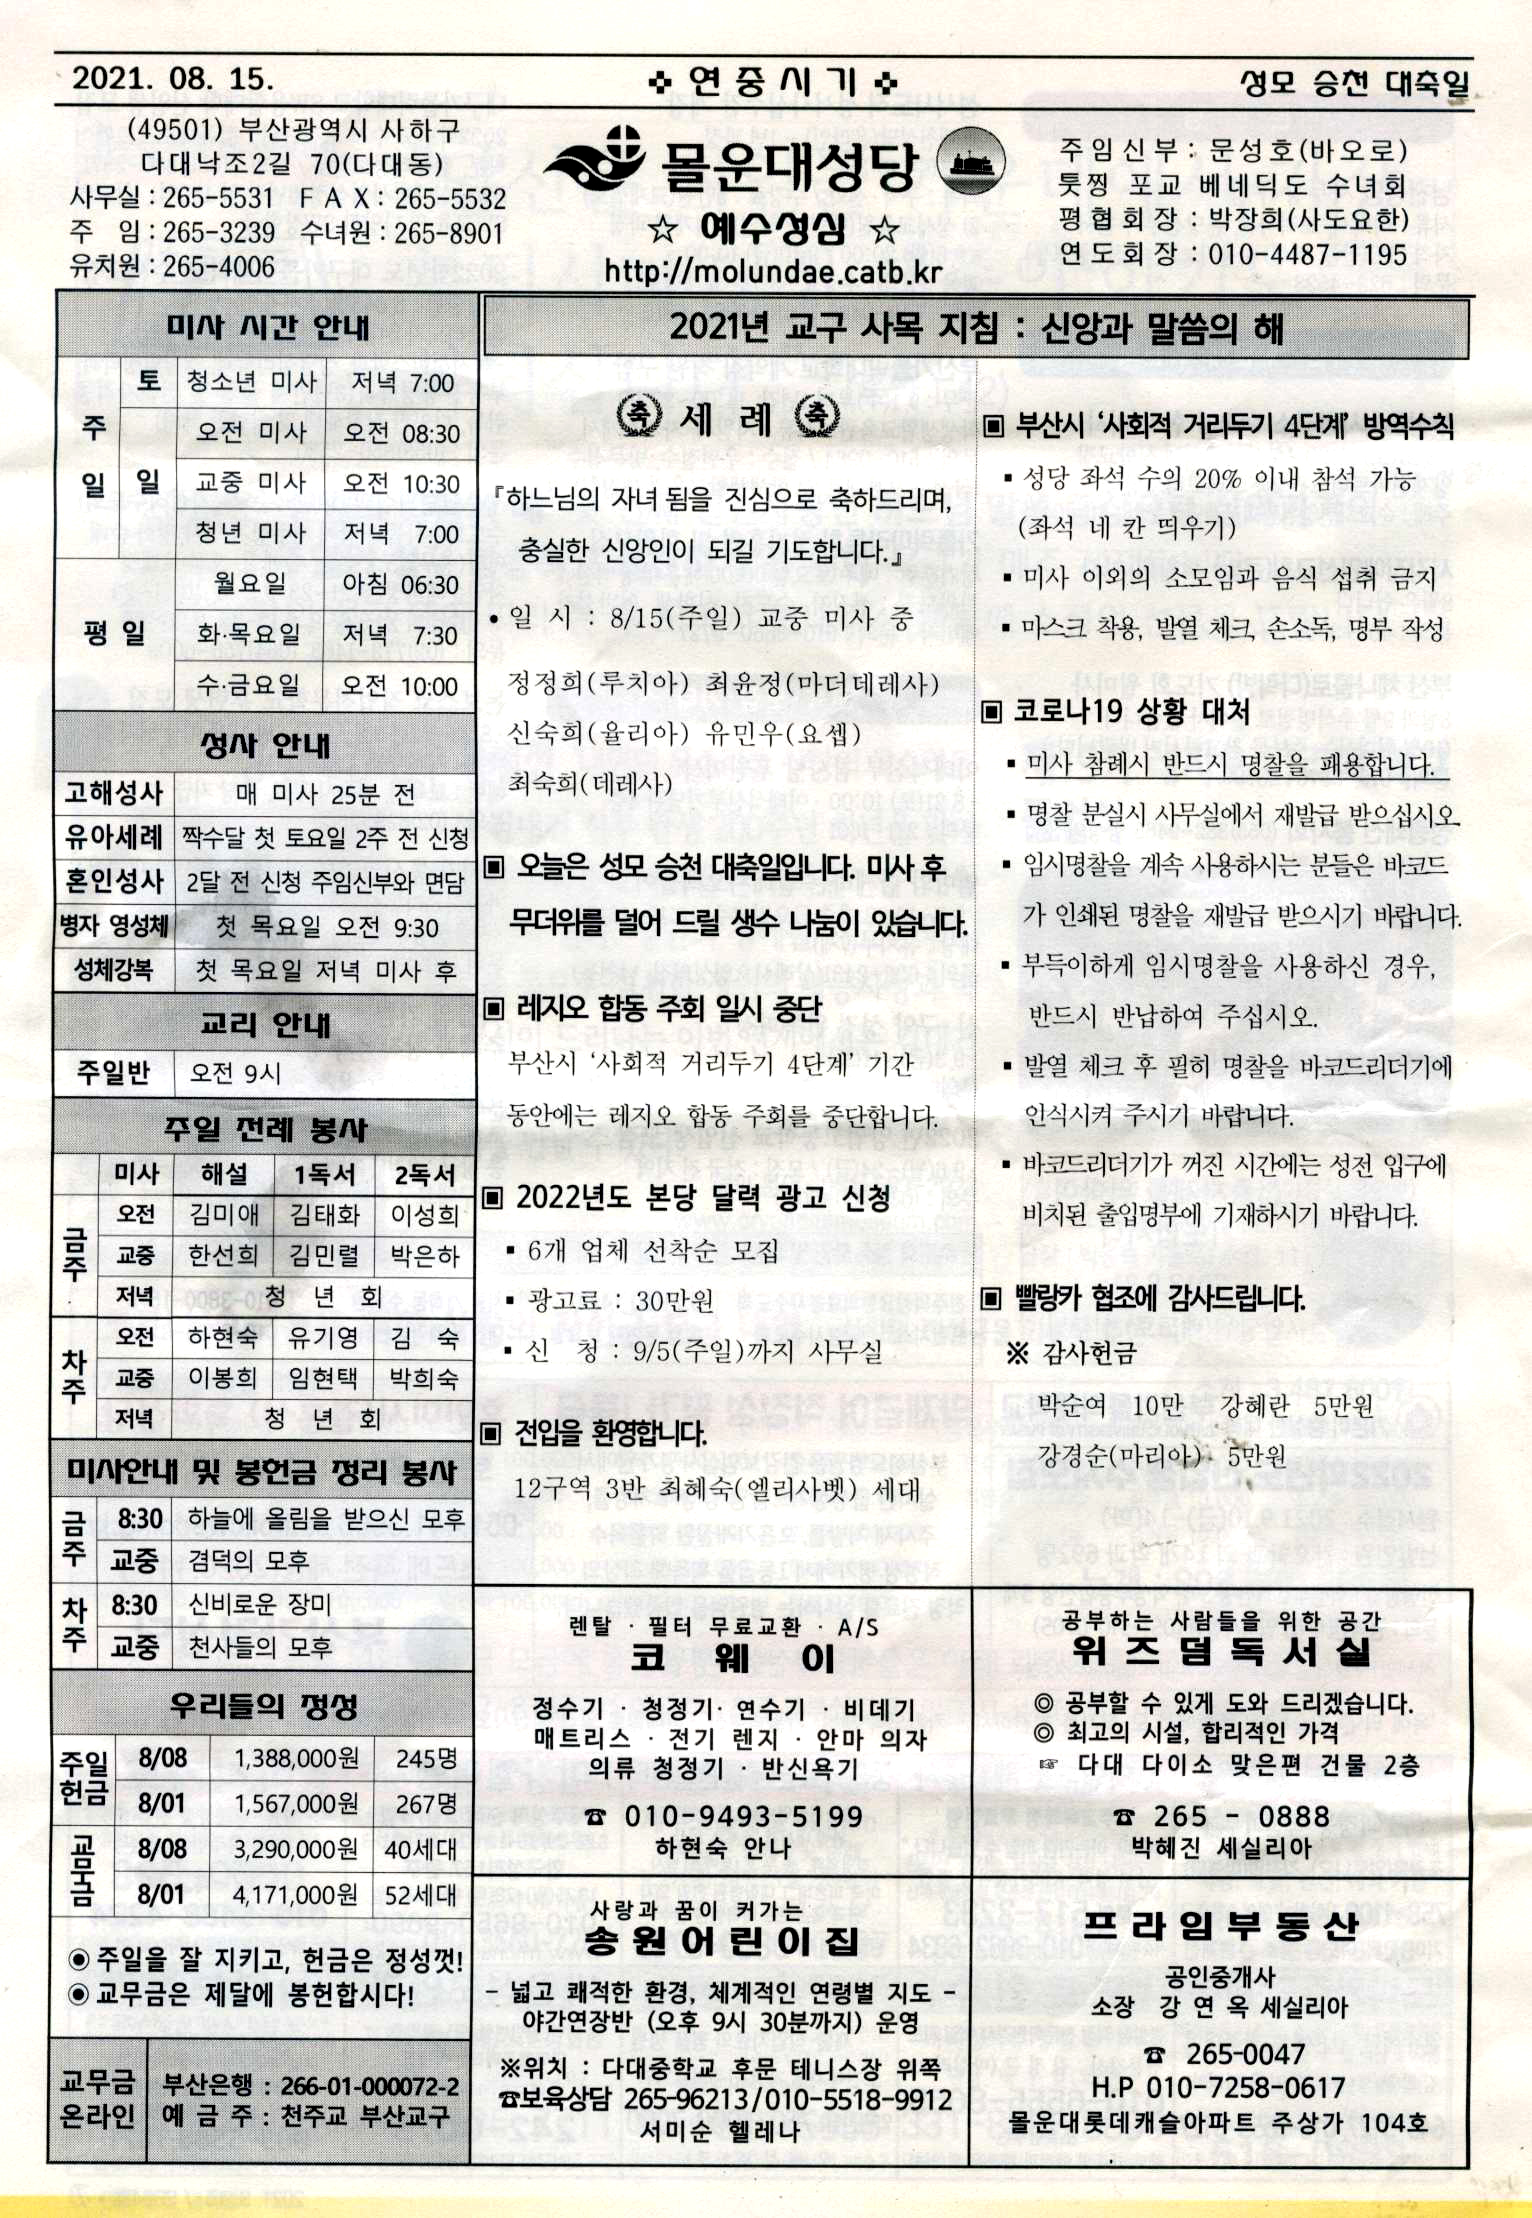 2021. 08. 15.
연중시기
성모 승천 대축일
(49501) 부산광역시 사하구
다대낙조2길 70(다대동)
사무실 : 265-5531 F A X : 265-5532
주 임 : 265-3239 수녀원 : 265-8901
유치원 : 265-4006
몰운대성당
☆ 예수성심 ☆
http://molundae.catb.kr
주임신부 : 문성호(바오로)
툿찡 포교 베네딕도 수녀회
평협회장 : 박장희(사도요한)
연도회장 : 010-4487-1195
미사 시간 안내
주일 토 청소년 미사 저녁 7:00
일 오전 미사 오전 08:30
교중 미사 오전 10:30
청년 미사 저녁 7:00
평일 월요일 아침 06:30
화·목요일 저녁 7:30
수·금요일 오전 10:00
성사 안내
고해성사 매 미사 25분 전
유아세례 짝수달 첫 토요일 2주 전 신청
혼인성사 2달 전 신청 주임신부와 면담
병자 영성체 첫 목요일 오전 9:30
성체강복 첫 목요일 저녁 미사 후
교리 안내
주일반 오전 9시
주일 전례 봉사
미사 해설 1독서 2독서
금주 오전 김미애 김태화 이성희
교중 한선희 김민렬 박은하
저녁 청 년 회
차주 오전 하현숙 유기영 김 숙
교중 이봉희 임현택 박희숙
저녁 청 년 회
미사안내 및 봉헌금 정리 봉사
금주 8:30 하늘에 올림을 받으신 모후
교중 겸덕의 모후
차주 8:30 신비로운 장미
교중 천사들의 모후
우리들의 정성
주일헌금 8/08 1,388,000원 245명
8/01 1,567,000원 267명
교무금 8/08 3,290,000원 40세대
8/01 4,171,000원 52세대
◉ 주일을 잘 지키고, 헌금은 정성껏!
◉ 교무금은 제달에 봉헌합시다!
교무금 온라인 부산은행 : 266-01-000072-2
예 금 주 : 천주교 부산교구
2021년 교구 사목 지침 : 신앙과 말씀의 해
축 세 례 축
『하느님의 자녀 됨을 진심으로 축하드리며,
충실한 신앙인이 되길 기도합니다.』
• 일 시 : 8/15(주일) 교중 미사 중
정정희(루치아) 최윤정(마더데레사)
신숙희(율리아) 유민우(요셉)
최숙희(데레사)
▣ 오늘은 성모 승천 대축일입니다. 미사 후
무더위를 덜어 드릴 생수 나눔이 있습니다.
▣ 레지오 합동 주회 일시 중단
부산시 ‘사회적 거리두기 4단계’ 기간
동안에는 레지오 합동 주회를 중단합니다.
▣ 2022년도 본당 달력 광고 신청
▪ 6개 업체 선착순 모집
▪ 광고료 : 30만원
▪ 신 청 : 9/5(주일)까지 사무실
▣ 전입을 환영합니다.
12구역 3반 최혜숙(엘리사벳) 세대
▣ 부산시 ‘사회적 거리두기 4단계’ 방역수칙
▪ 성당 좌석 수의 20% 이내 참석 가능
(좌석 네 칸 띄우기)
▪ 미사 이외의 소모임과 음식 섭취 금지
▪ 마스크 착용, 발열 체크, 손소독, 명부 작성
▣ 코로나19 상황 대처
▪ 미사 참례시 반드시 명찰을 패용합니다.
▪ 명찰 분실시 사무실에서 재발급 받으십시오.
▪ 임시명찰을 계속 사용하시는 분들은 바코드
가 인쇄된 명찰을 재발급 받으시기 바랍니다.
▪ 부득이하게 임시명찰을 사용하신 경우,
반드시 반납하여 주십시오.
▪ 발열 체크 후 필히 명찰을 바코드리더기에
인식시켜 주시기 바랍니다.
▪ 바코드리더기가 꺼진 시간에는 성전 입구에
비치된 출입명부에 기재하시기 바랍니다.
▣ 빨랑카 협조에 감사드립니다.
※ 감사헌금
박순여 10만 강혜란 5만원
강경순(마리아) 5만원
렌탈 · 필터 무료교환 · A/S
코 웨 이
정수기 · 청정기· 연수기 · 비데기
매트리스 · 전기 렌지 · 안마 의자
의류 청정기 · 반신욕기
☎ 010-9493-5199
하현숙 안나
공부하는 사람들을 위한 공간
위즈덤독서실
◎ 공부할 수 있게 도와 드리겠습니다.
◎ 최고의 시설, 합리적인 가격
☞ 다대 다이소 맞은편 건물 2층
☎ 265 - 0888
박혜진 세실리아
사랑과 꿈이 커가는
송원어린이집
- 넓고 쾌적한 환경, 체계적인 연령별 지도 -
야간연장반 (오후 9시 30분까지) 운영
※위치 : 다대중학교 후문 테니스장 위쪽
☎보육상담 265-96213/010-5518-9912
서미순 헬레나
프라임부동산
공인중개사
소장 강 연 옥 세실리아
☎ 265-0047
H.P 010-7258-0617
몰운대롯데캐슬아파트 주상가 104호